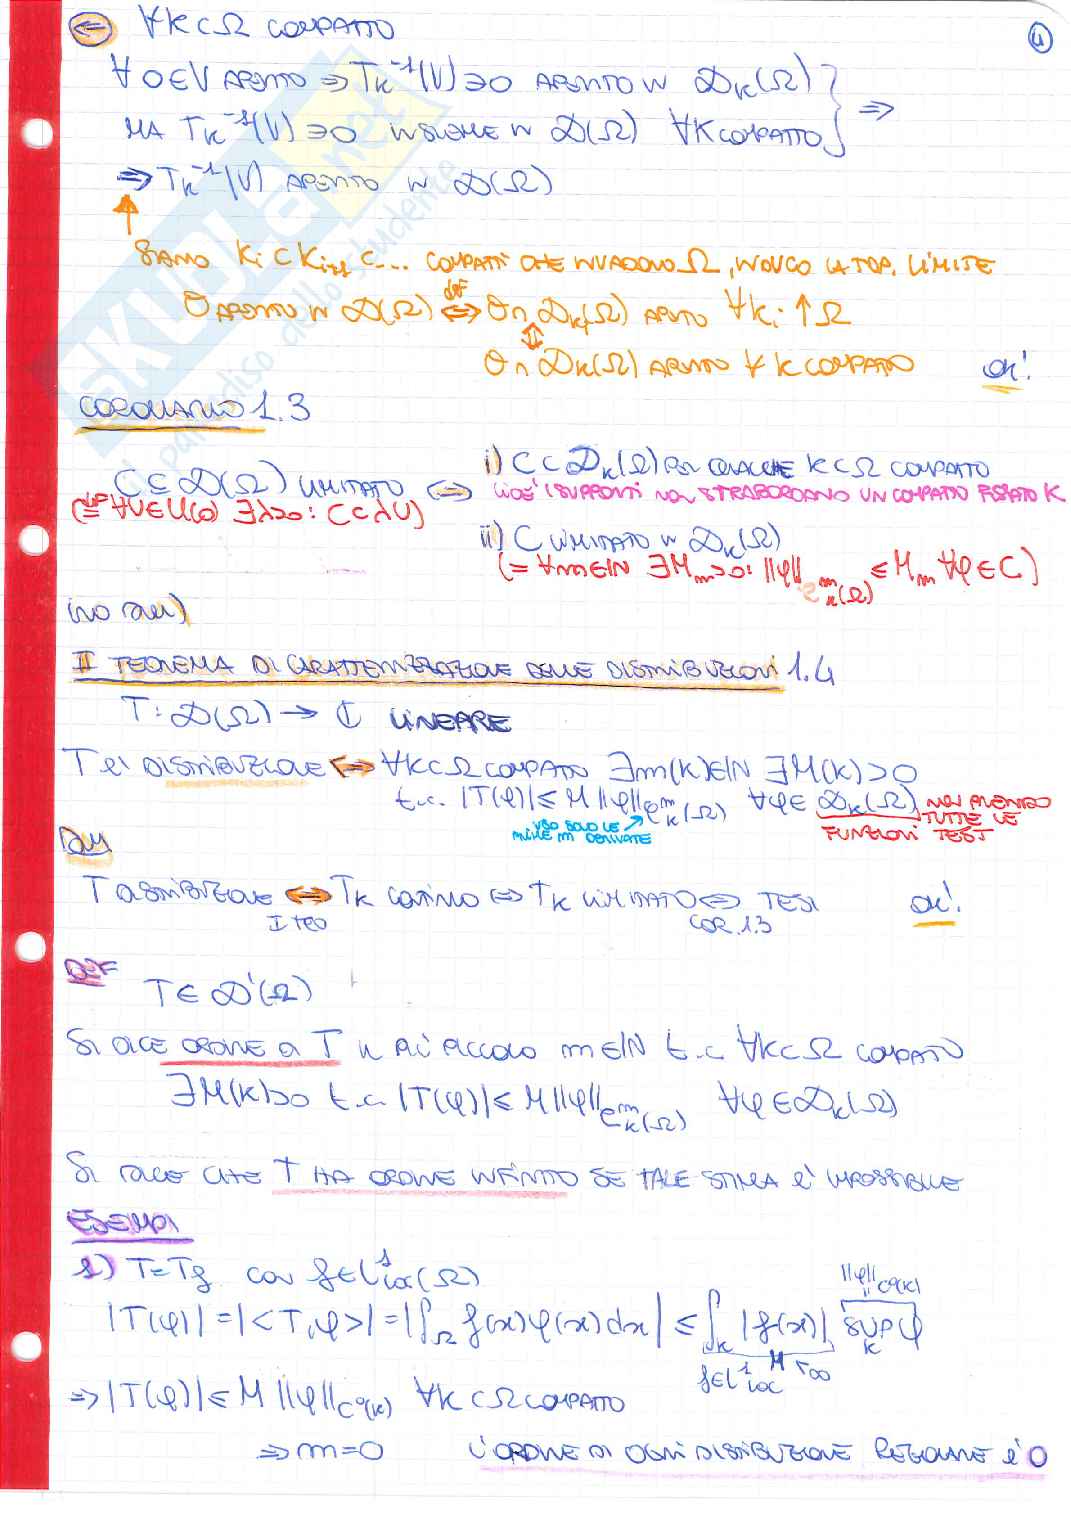 ④
⇐ ∀K⊂Ω COMPATTO
∀ 0∈V APERTO ⇒ T_K^{-1}(V)∋0 APERTO IN 𝒟_K(Ω) } ⇒
MA T_K^{-1}(V)∋0 INSIEME IN 𝒟(Ω) ∀K COMPATTO
⇒ T_K^{-1}(V) APERTO IN 𝒟(Ω)
SIANO K_i⊂K_{i+1}⊂... COMPATTI CHE INVADONO Ω, INVOCO LA TOP. LIMITE
θ APERTO IN 𝒟(Ω) ⇔(def) θ∩𝒟_{K_i}(Ω) APERTO ∀K_i ↑ Ω
⇕
θ∩𝒟_K(Ω) APERTO ∀K COMPATTO OK!
COROLLARIO 1.3
C⊆𝒟(Ω) LIMITATO ⇔ i) C⊂𝒟_K(Ω) PER QUALCHE K⊂Ω COMPATTO
(def= ∀V∈U(0) ∃λ>0: C⊂λV)
CIOÈ I SUPPORTI NON STRABORDANO UN COMPATTO FISSATO K
ii) C LIMITATO IN 𝒟_K(Ω)
(= ∀m∈ℕ ∃M_m>0: ||φ||_{C_K^m(Ω)} ≤ M_m ∀φ∈C)
(NO DIM)
II TEOREMA DI CARATTERIZZAZIONE DELLE DISTRIBUZIONI 1.4
T: 𝒟(Ω) → ℂ LINEARE
T È DISTRIBUZIONE ⇔ ∀K⊂Ω COMPATTO ∃m(K)∈ℕ ∃M(K)>0
t.c. |T(φ)| ≤ M ||φ||_{C_K^m(Ω)} ∀φ∈𝒟_K(Ω)
NON PRENDO TUTTE LE FUNZIONI TEST
USO SOLO LE PRIME m DERIVATE
DIM
T DISTRIBUZIONE ⇔ T_K CONTINUO ⇔ T_K LIMITATO ⇔ TESI OK!
I TEO
COR. 1.3
DEF
T∈𝒟'(Ω)
SI DICE ORDINE DI T IL PIÙ PICCOLO m∈ℕ t.c. ∀K⊂Ω COMPATTO
∃M(K)>0 t.c. |T(φ)| ≤ M ||φ||_{C_K^m(Ω)} ∀φ∈𝒟_K(Ω)
SI DICE CHE T HA ORDINE INFINITO SE TALE STIMA È IMPOSSIBILE
ESEMPI
1) T=T_f CON f∈L^1_{loc}(Ω)
|T(φ)| = |<T,φ>| = |∫_Ω f(x)φ(x)dx| ≤ ∫_K |f(x)| sup_K φ
||φ||_{C^0(K)}
"
M <∞
f∈L^1_{loc}
⇒ |T(φ)| ≤ M ||φ||_{C^0(K)} ∀K⊂Ω COMPATTO
⇒ m=0 L'ORDINE DI OGNI DISTRIBUZIONE REGOLARE È 0
SKUOLA.net
il paradiso dello studente